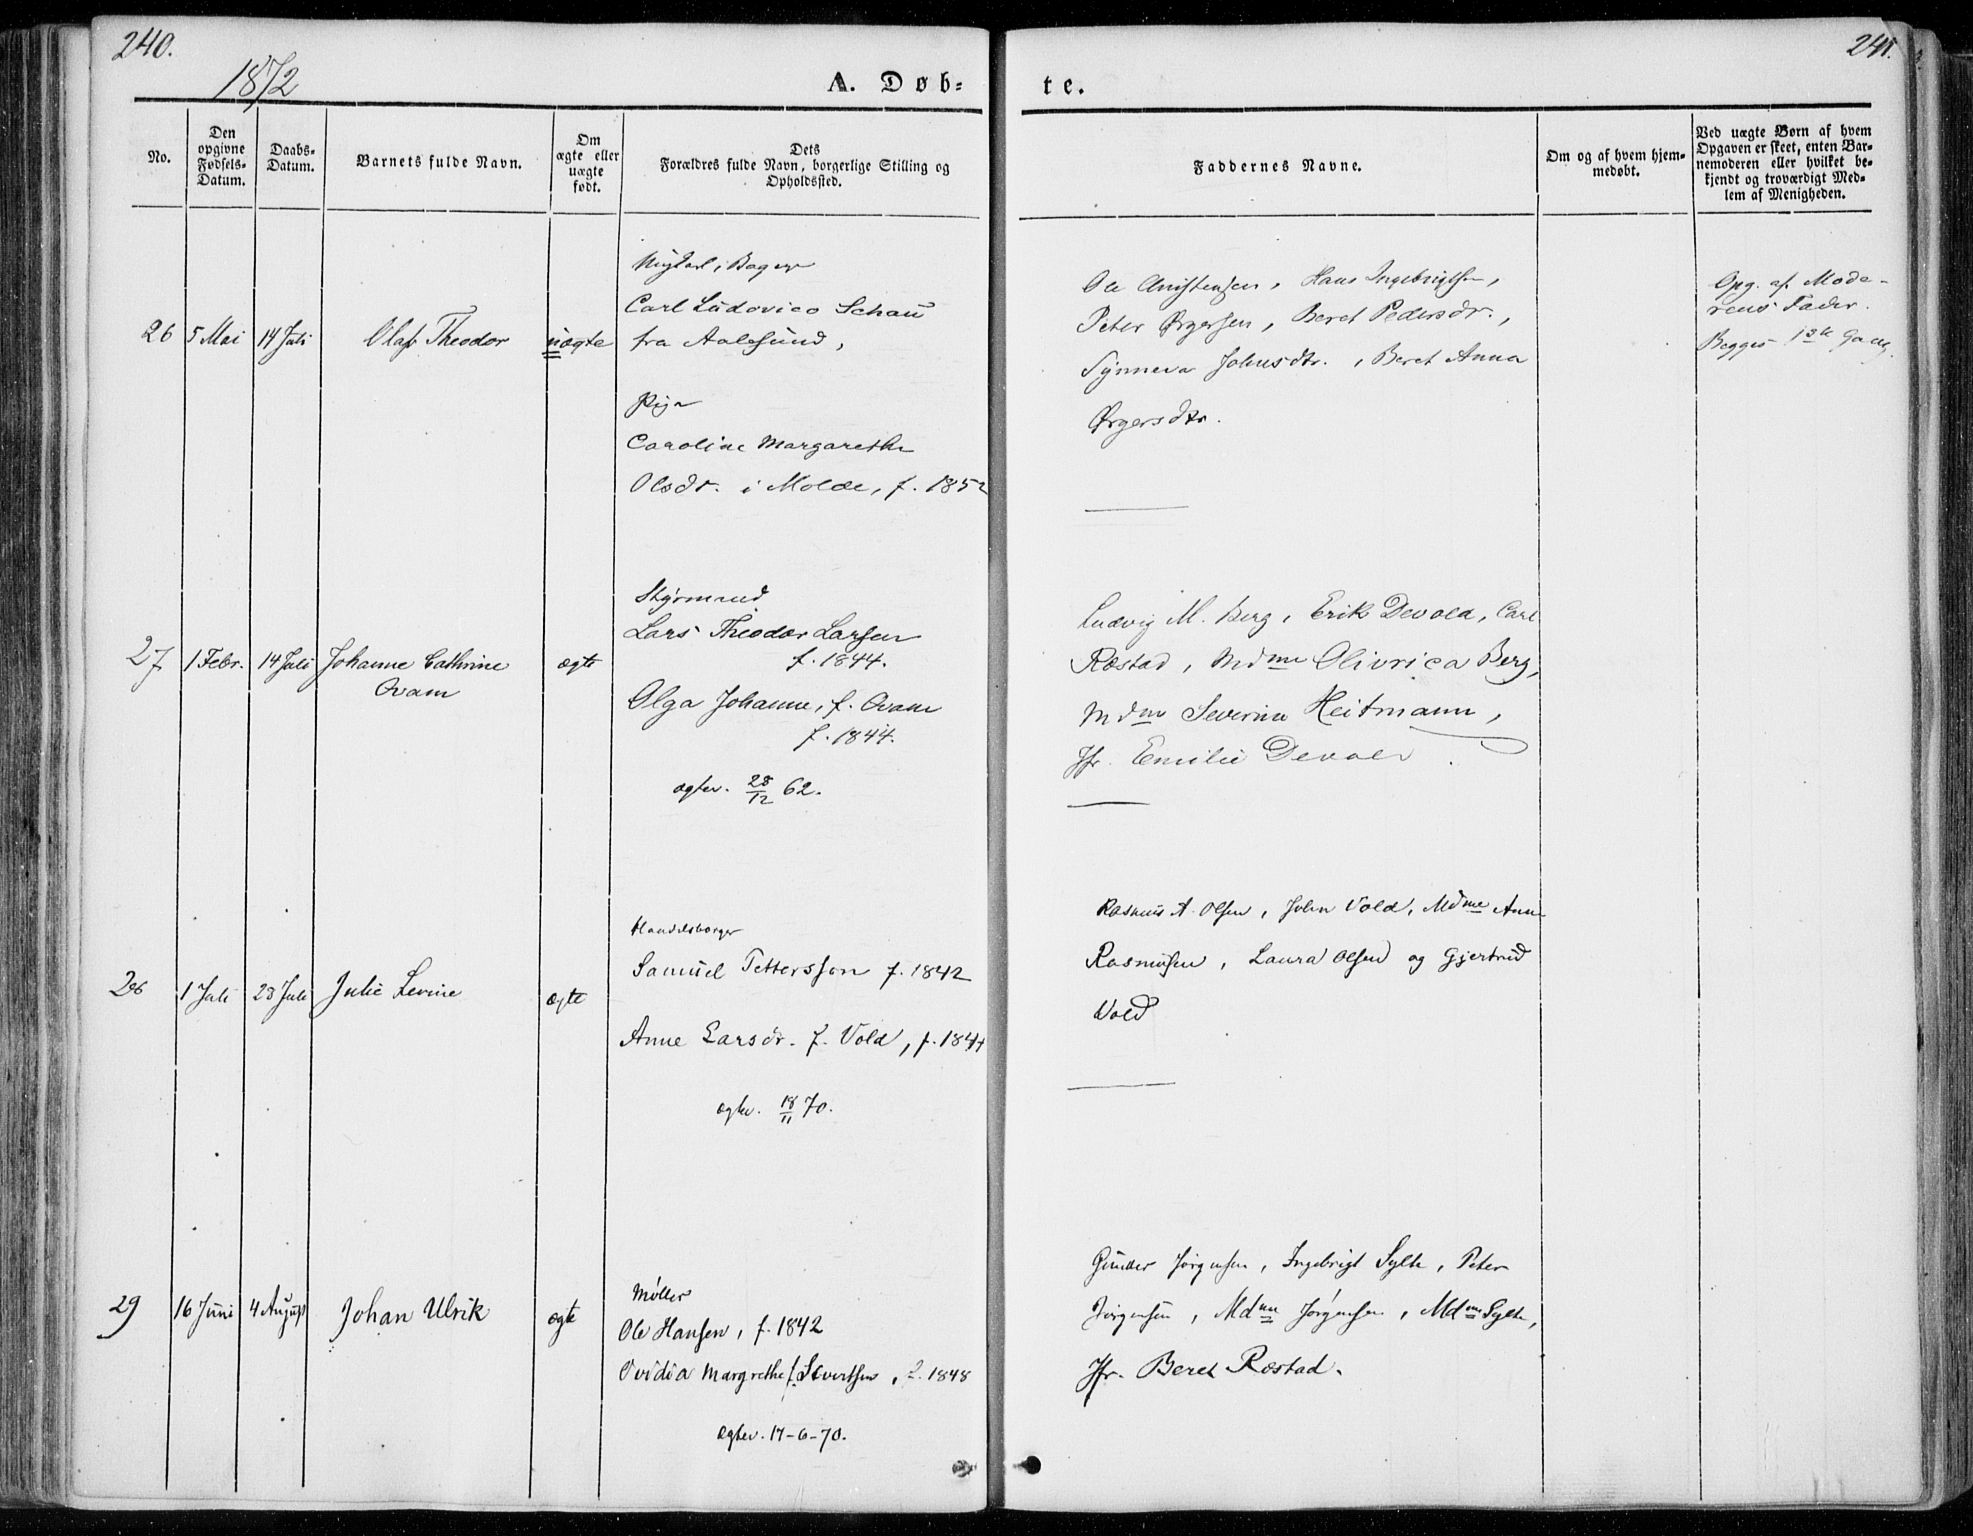 240.
1872
A. Døb-
No.
Den opgivne Fødsels-Datum.
Daabs-Datum.
Barnets fulde Navn.
Om ægte eller uægte født.
Dets
Forældres fulde Navn, borgerlige Stilling og
Opholdssted.
26 5 Mai 14 Juli Olaf Theodor uægte
Carl Ludovico Schau
fra Aalesund,
Pige
Caroline Margarethe
Olsdr. i Molde, f. 1852
27 1 Febr. 14 Juli Johanne Cathrine ægte
Qvam
Styrmand
Lars Theodor Larsen
f. 1844.
Olga Johanne, f. Qvam
f. 1844.
ægtev. 28/12 62.
28 1 Juli 28 Juli Julie Levine ægte
Handelsborger
Samuel Pettersson f. 1842
Anne Larsdr. f. Vold, f. 1844
ægtev. 18/11 70.
29 16 Juni 4 August Johan Ulrik ægte
Møller
Ole Hansen, f. 1842
Ovidia Margrethe f. Sivertsen, f. 1848
ægtev. 17-6-70.
241.
te.
Faddernes Navne.
Om og af hvem hjem-
medøbt.
Ved uægte Børn af hvem
Opgaven er skeet, enten Bar-
nemoderen eller hvilket be-
kjendt og troværdigt Med-
lem af Menigheden.
Ole Christensen, Hans Ingebrigtsen,
Peter Ørgersen, Beret Pedersdr.,
Synneva Johnsdtr., Beret Anna
Ørgersdtr.
Opg. af Mode-
rens Fader.
Begges 1ste Gang.
Ludvig M. Berg, Erik Devold, Carl
Røstad, Mdme Olivrica Berg,
Mdm Severine Heitmann,
Jfr. Emilie Devold.
Rasmus A. Olsen, John Vold, Mdme Anne
Rasmusen, Laura Olsen og Gjertrud
Vold
Gunder Jørgensen, Ingebrigt Sylte, Peter
Jørgensen, Mdme Jørgensen, Mdme Sylte,
Jfr. Beret Røstad.